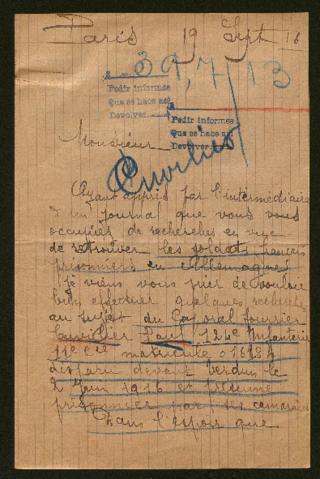 Paris 19 Sept 16
39,713
Pedir informes
Que se hace así
Devolver
Pedir informes
Que se hace así
Devolver
Monsieur
Ayant appris par l'intermédiaire
d'un journal que vous vous
occupiez de recherches en vue
de retrouver les soldats français
prisonniers en Allemagne
je viens vous prier de vouloir
bien effectuer quelques recherches
au sujet du Caporal fourrier
Paul 124e Infanterie
11e Cie matricule 01684
disparu devant Verdun le
2 Juin 1916 et présumé
prisonnier par ses camarades
Dans l'espoir que